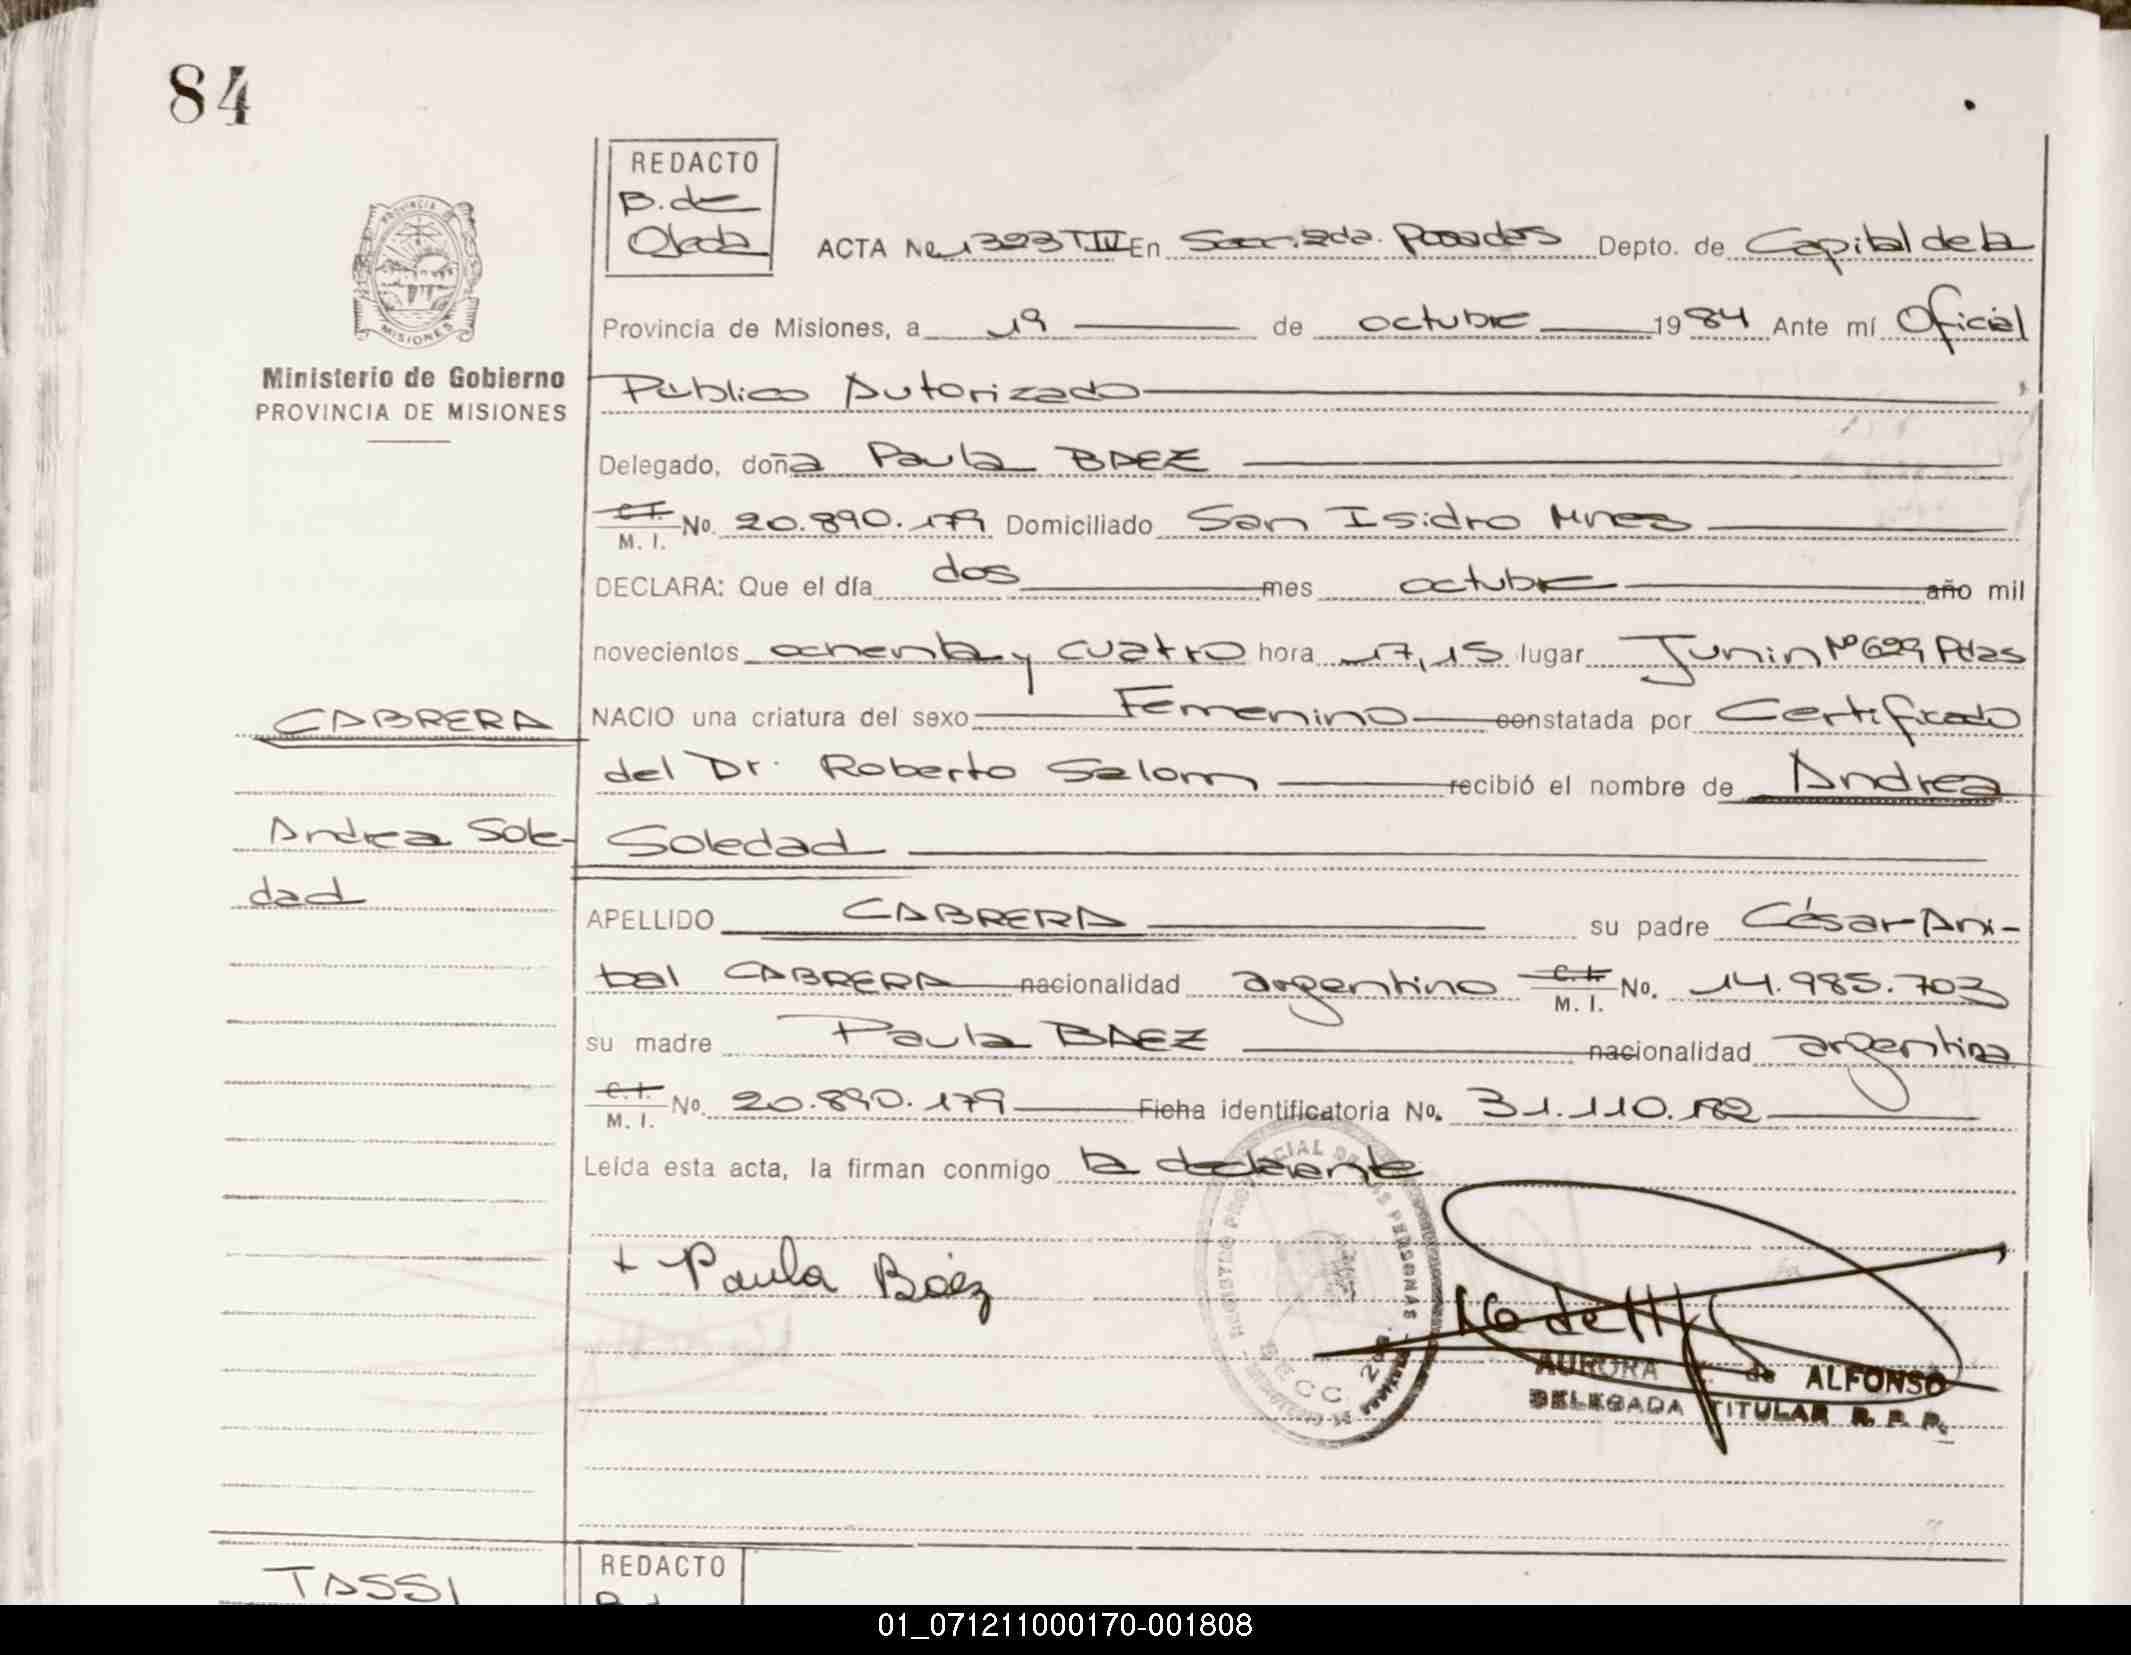 84
REDACTO
B. de
Ojeda
ACTA No 1323 T.IV En Secc. 2da. Posadas Depto. de Capital de la
PROVINCIA DE
MISIONES
Provincia de Misiones, a 19 de octubre 1984 Ante mí Oficial
Ministerio de Gobierno
PROVINCIA DE MISIONES
Público Autorizado
Delegado, doña Paula BAEZ
C.I.
M. I. No. 20.890.179 Domiciliado San Isidro Mnes
DECLARA: Que el día dos mes octubre año mil
novecientos ochenta y cuatro hora 17,15 lugar Junin Nº 629 Pdas
CABRERA
NACIO una criatura del sexo Femenino constatada por Certificado
del Dr. Roberto Salom recibió el nombre de Andrea
Andrea Sole-
dad
Soledad
APELLIDO CABRERA su padre César Ani-
bal CABRERA nacionalidad argentino C.I. M. I. No. 14.985.703
su madre Paula BAEZ nacionalidad argentina
C.I.
M. I. No. 20.890.179 Ficha identificatoria No. 31.110.182
Leída esta acta, la firman conmigo la declarante
+ Paula Báez
REGISTRO PROVINCIAL DE LAS PERSONAS
SECC. 2da.
AURORA de ALFONSO
DELEGADA TITULAR R. P. P.
TASSI
REDACTO
01_071211000170-001808